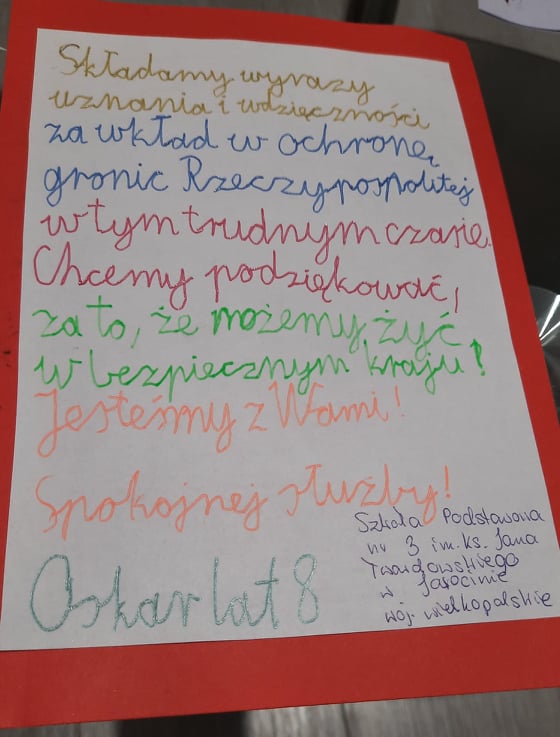 Składamy wyrazy
uznania i wdzięczności
za wkład w ochronę
gronic Rzeczypospolitej
w tym trudnym czasie.
Chcemy podziękować,
za to, że możemy żyć
w bezpiecznym kraju!
Jesteśmy z Wami!
Spokojnej służby!
Oskar lat 8
Szkoła Podstawowa
nr 3 im. ks. Jana
Twardowskiego
w Jarocinie
woj. wielkopolskie